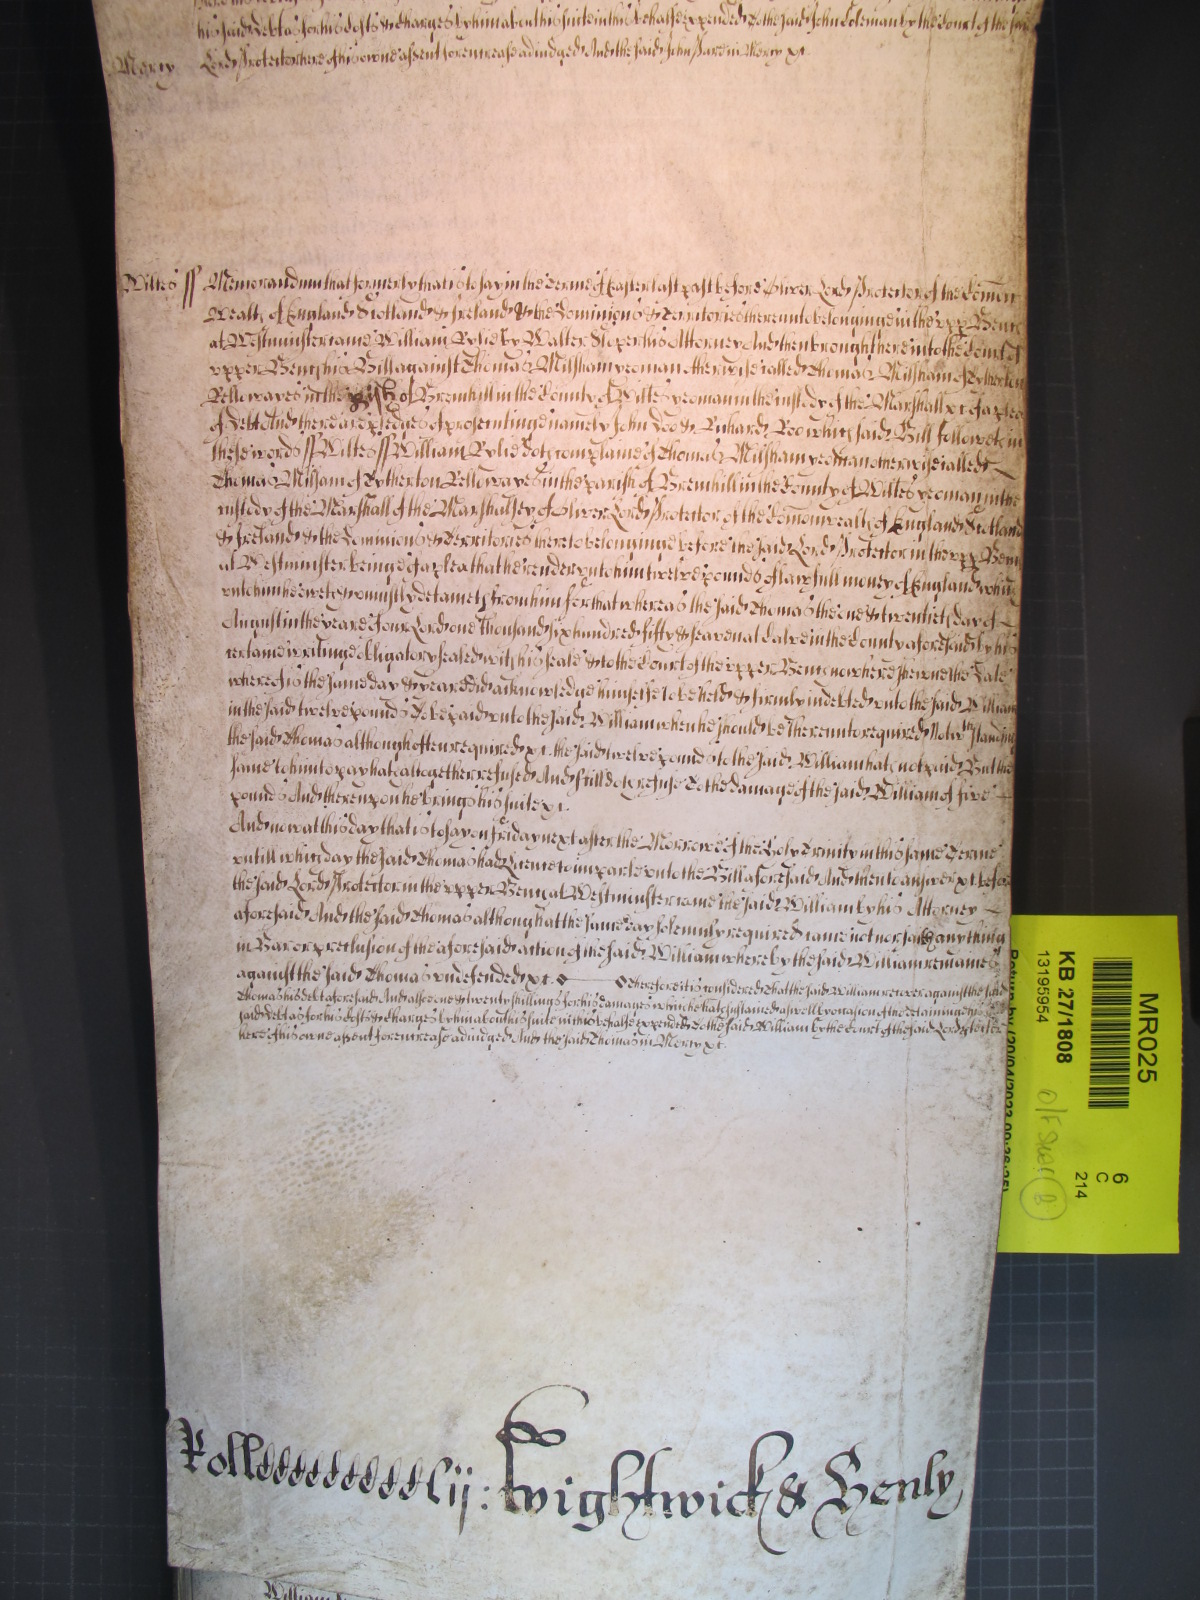 his said debt as for his Costs & charges by him about his suite in this behalfe expended to the said John Coleman by the Court of the said
Mercy Lord Protector here of his owne assent for increase adiudged And the said John Pare in Mercy xt.
Wiltes ss Memorandum that formerly that is to say in the terme of Easter last past before Oliver Lord Protector of the Comon
Wealth of England Scotland & Ireland & the Dominions & Territories thereunto belonginge in the vpp Bench
at Westminster came William Rylie by Walter Sloper his Attorney And then brought here into the Court of
vpper Bench his Bill against Thomas Milsham yeoman otherwise called Thomas Milsham of Tytherton
Kellowayes in the pish of Bremhill in the County of Wiltes yeoman in the custody of the Marshall xt. of a plea
of debt And there are pledges of prosecutinge namely John Doe & Richard Roo which said Bill followeth in
these words ss Wiltes ss William Rylie doth complaine of Thomas Milsham yeoman otherwise called
Thomas Milsam of Tytherton Kellowayes in the parish of Bremhill in the County of Wiltes yeoman in the
custody of the Marshall of the Marshalsey of Oliver Lord Protector of the Comonwealth of England Scotland
& Ireland & the Dominions & Territories thereto belonginge before the said Lord Protector in the vpp Bench
at Westminster beinge of a plea that he render vnto him twelve pounds of lawfull money of England which
vnto him he oweth & vniustly detaineth from him for that whereas the said Thomas the one & twentieth day of
August in the yeare of our Lord one Thousand six hundred fifty & seaven at Calne in the County aforesaid by his
certaine writinge obligatory sealed with his seale & to the Court of the vpper Bench now here shewne the Date
whereof is the same day & yeare did acknowledge himselfe to be held & firmly indebted vnto the said William
in the said twelve pounds to be paid vnto the said William when he should be thereunto required Notwthstanding
the said Thomas although often required xt. the said twelve pounds to the said William hath not paid But the
same to him to pay hath altogether refused And still doth refuse To the damage of the said William of five
pounds And thereupon he brings his suite xt.
And now at this day that is to say on Friday next after the Morrow of the Holy Trinity in this same Terme
vntill which day the said Thomas had Licence to imparle vnto the Bill aforesaid And then to answer xt. before
the said Lord Protector in the vpper Bench at Westminster came the said William by his Attorney
aforesaid And the said Thomas although at the same day solemnly required came not nor said any thing
in Bar or preclusion of the aforesaid action of the said William whereby the said William remaines
against the said Thomas vndefended xt. Therefore it is considered that the said William recover against the said
Thomas his debt aforesaid And alsoe one & twenty shillings for his damages which he hath sustained aswell by occasion of the detaininge of his
said debt as for his Costs & Charges by him about his suite in this behalfe expended to the said William by the Court of the said Lord Protector
here of his owne assent for increase adiudged And the said Thomas in Mercy xt.
Roll lij: Wightwick & Henly
William
MR025
KB 27/1808
13195954
6
C
214
Return by (20/04/2023 09:36:25)